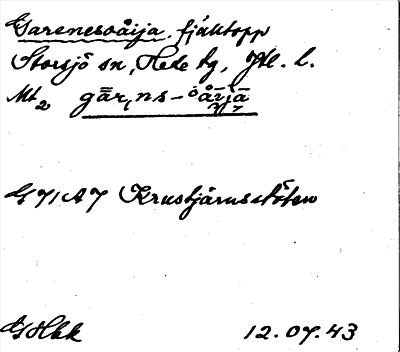 Garenesoåija, fjälltopp
Storsjö sn, Hede hg, Jtl. l.
Mt2 gār,ns-oåvjā
G 71 A7 Krustjärnsstöten
GHbk 12.07.43